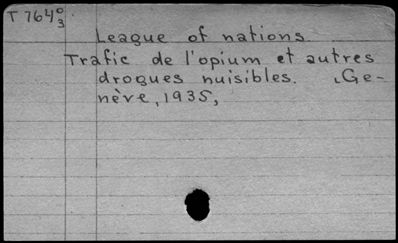 T 764 0/3
League of nations
Trafic de l'opium et autres
drogues nuisibles. [Ge-
nève, 1935,